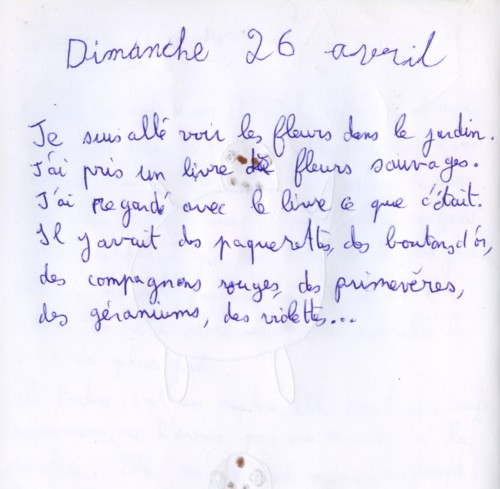 Dimanche 26 avril
Je suis allé voir les fleurs dans le jardin.
J'ai pris un livre de fleurs sauvages.
J'ai regardé avec le livre ce que c'était.
Il y avait des paquerettes, des boutons d'or,
des compagnons rouges, des primevères,
des géraniums, des violettes...